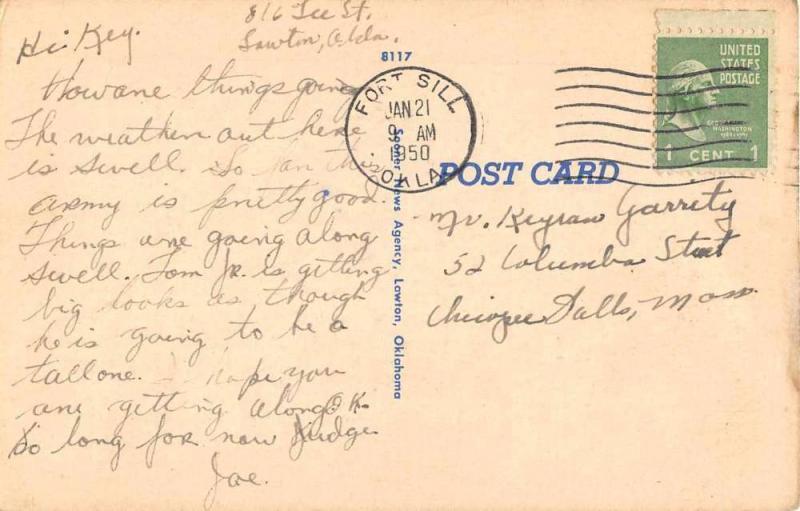 816 Lee St.
Lawton, Okla.
Hi Key.
How are things going
The weather out here
is swell. So far the
army is pretty good.
Things are going along
swell. Tom Jr. is getting
big looks as though
he is going to be a
tall one. I hope you
are getting along O.K.
So long for now Judge
Joe.
8117
Sooner News Agency, Lawton, Oklahoma
FORT SILL
JAN 21
9 AM
1950
OKLA.
UNITED
STATES
POSTAGE
GEORGE
WASHINGTON
1 CENT 1
POST CARD
Mr. Keyran Garrity
52 Columba Street
Chicopee Falls, Mass.